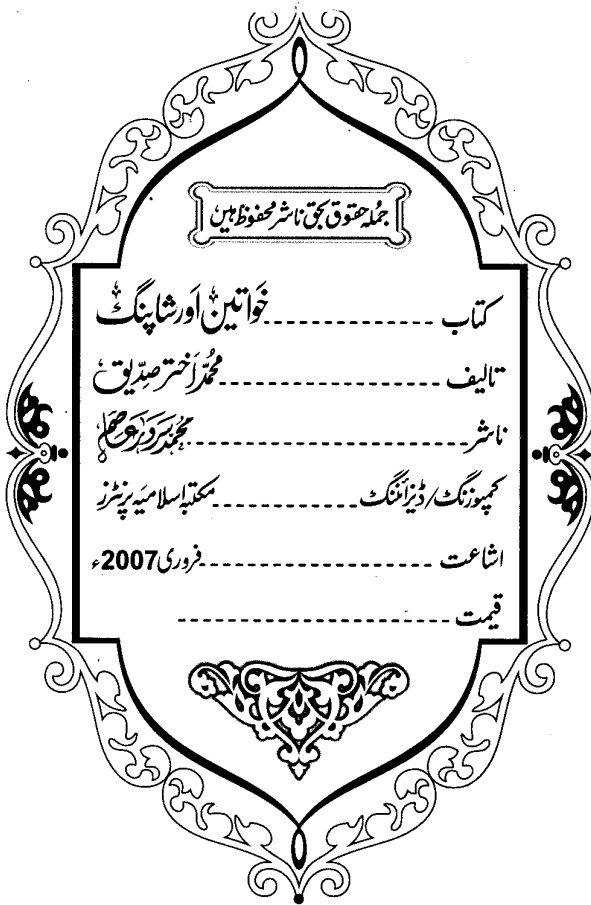 جملہ حقوق بحق ناشر محفوظ ہیں
کتاب ---------------- خواتین اور شاپنگ
تالیف ---------------- محمد اختر صدیق
ناشر ---------------- محمد سرور عاصم
کمپوزنگ/ڈیزائننگ ---------------- مکتبہ اسلامیہ پرنٹرز
اشاعت ---------------- فروری 2007ء
قیمت ----------------